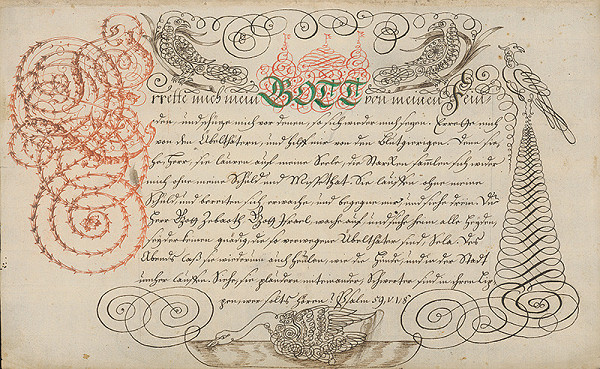 Errette mich mein GOTT von meinen Fein-
den, und schütze mich vor denen, so sich wieder mich sezen. Errette mich
von den Übelthätern, und hilff mir von den Blutgierigen. Denn sie-
he, Herr, sie lauren auf meine Seele, die Starcken samlen sich wider
mich ohne meine Schuld und Missethat. Sie lauffen ohne meine
Schuld und bereiten sich, erwache, und begegne mir, und siehe drein. Du
Herr Gott Zebaoth Gott Israel, wache auf, und suche heim alle Heyden,
sey der keinem gnädig, die so verwegene Übelthäter sind, Sela. Des
Abends laß sie wiederum auch heulen, wie die Hunde, und in der Stadt
umher lauffen. Siehe, sie plaudern miteinander, Schwerter sind in ihren Lip-
pen, wer solts hören? Psalm 59, v 1/8